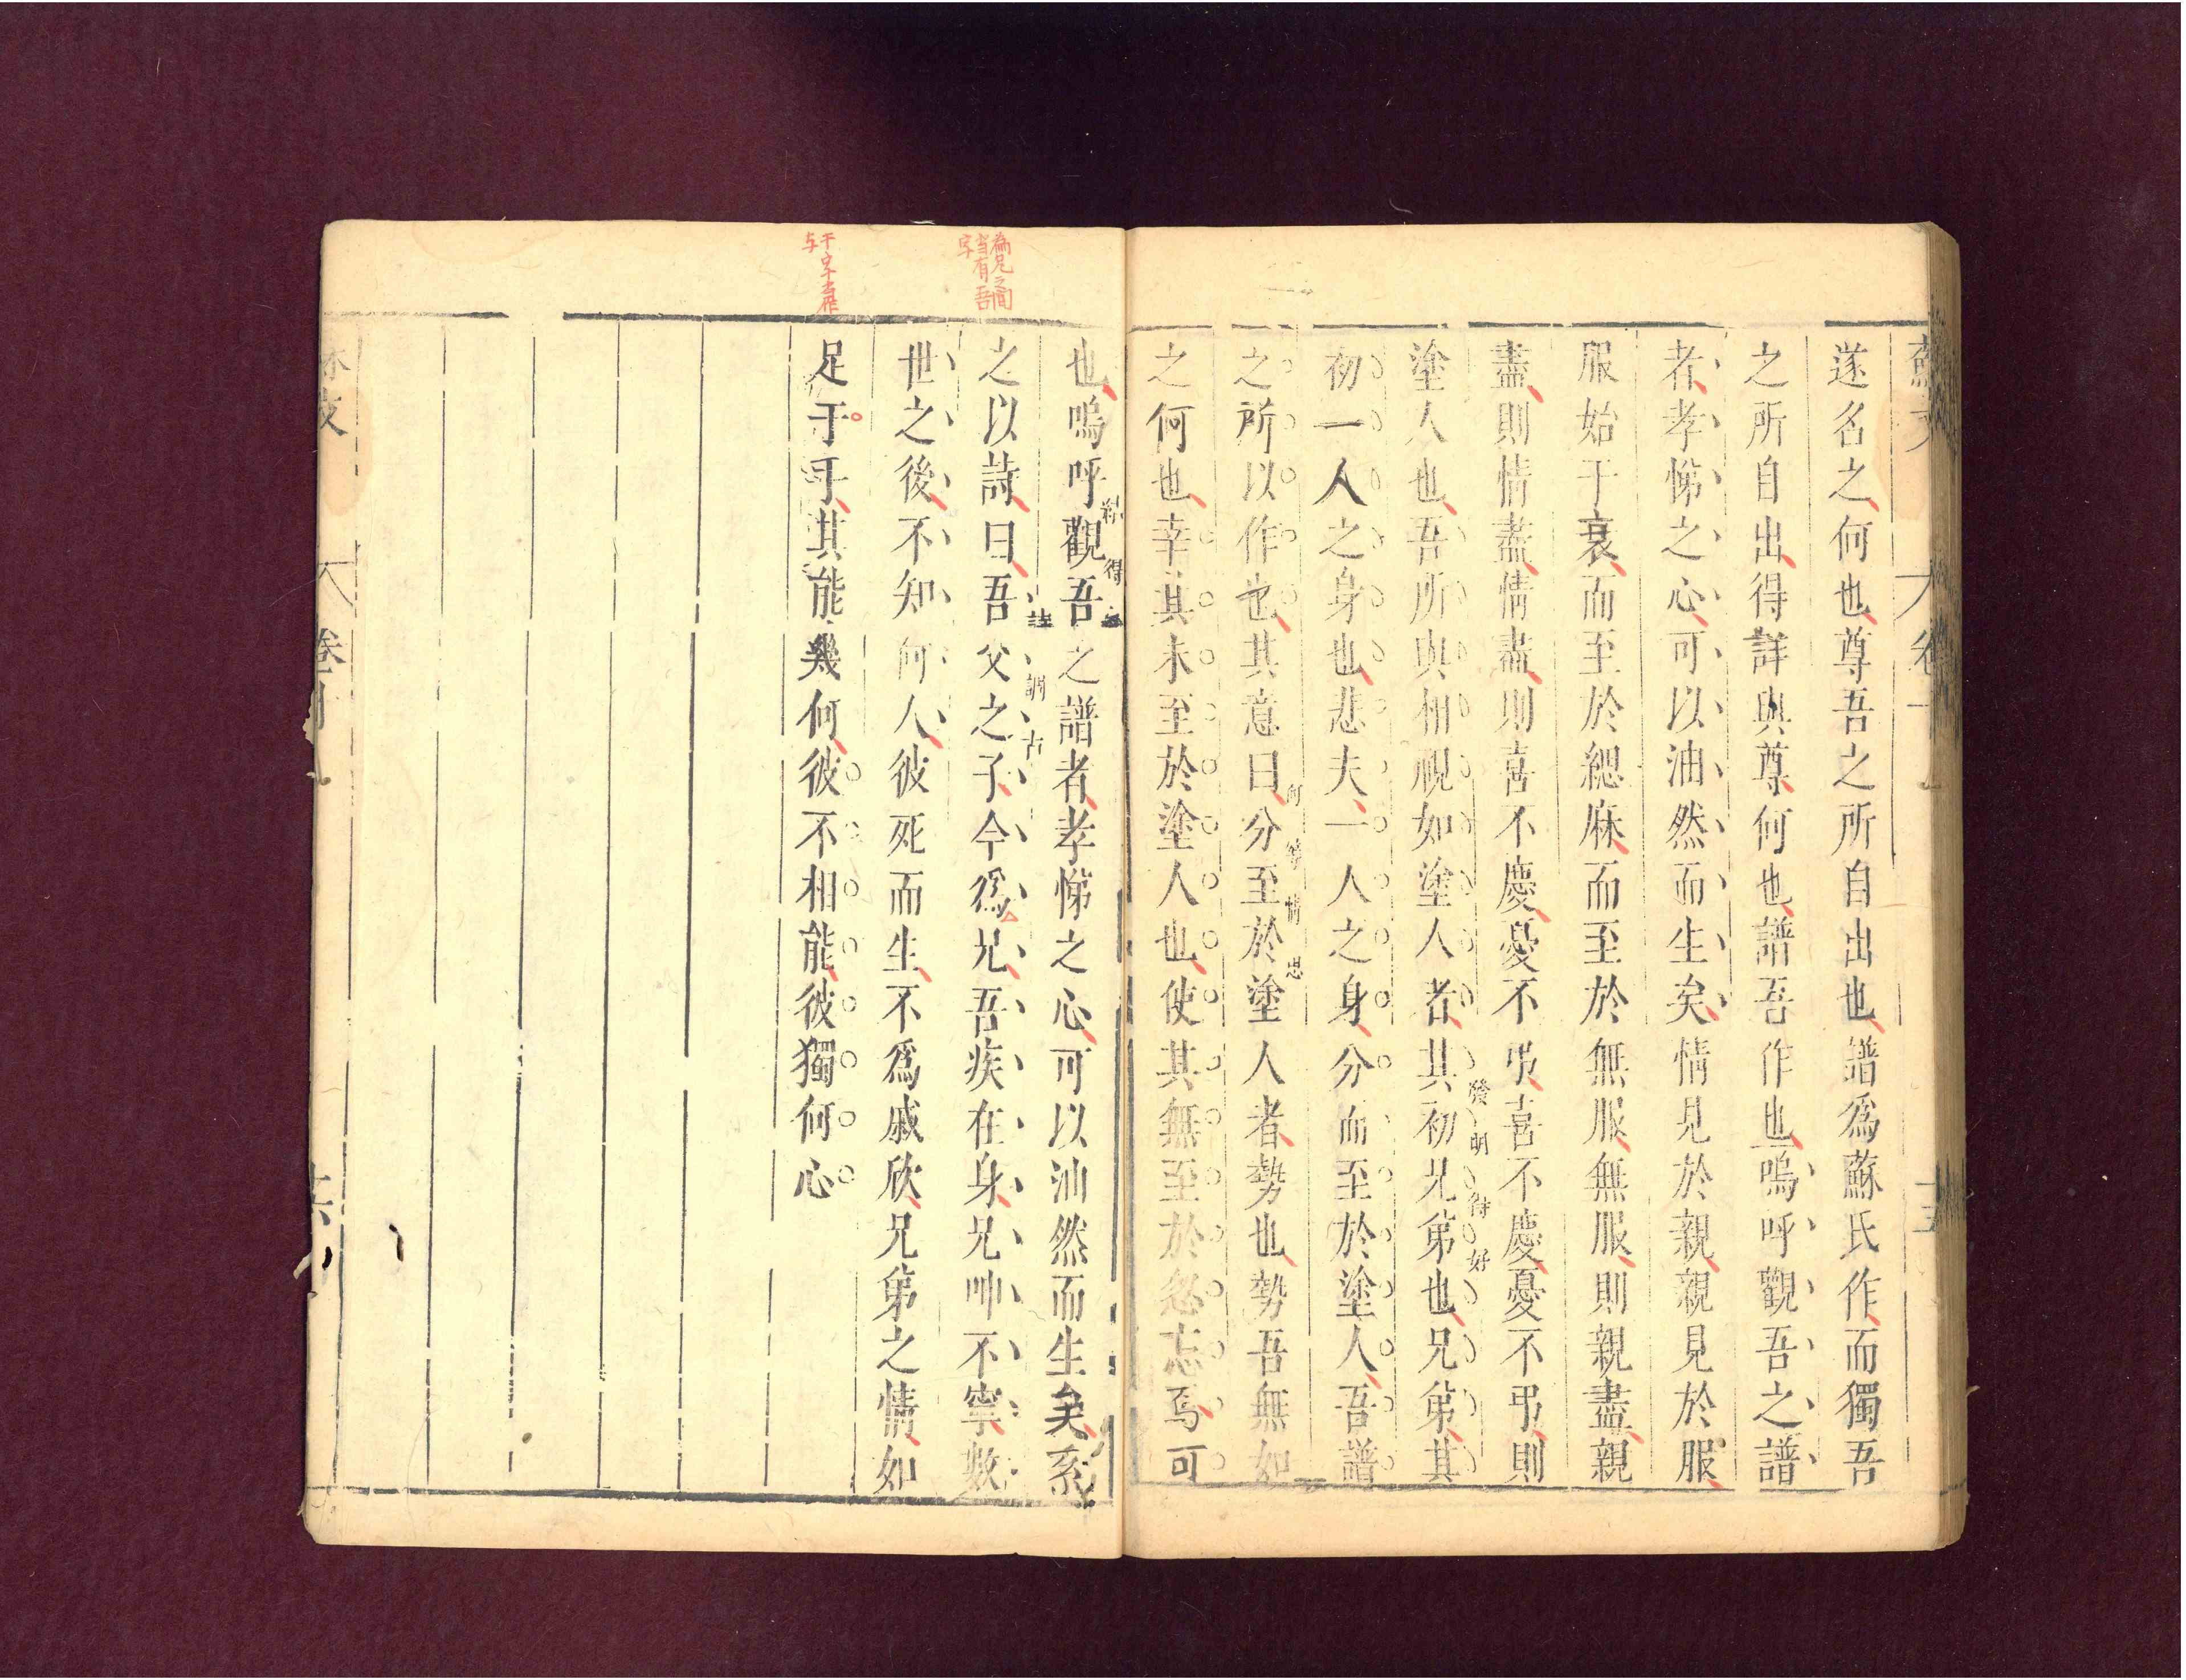 遂名之何也尊吾之所自出也譜爲蘇氏作而獨吾
之所自出得詳與尊何也譜吾作也嗚呼觀吾之譜
者孝悌之心可以油然而生矣情見於親親見於服
服始于衰而至於緦麻而至於無服無服則親盡親
盡則情盡情盡則喜不慶憂不弔喜不慶憂不弔則
塗人也吾所與相視如塗人者其初兄弟也兄弟其
發明得好
初一人之身也悲夫一人之身分而至於塗人吾譜
之所以作也其意曰分至於塗人者勢也勢吾無如
之何也幸其未至於塗人也使其無至於忽忘焉可
也嗚呼觀吾之譜者孝悌之心可以油然而生矣系
結得
之以詩曰吾父之子今爲兄吾疾在身兄呻不寧數
詩調古
世之後不知何人彼死而生不爲戚欣兄弟之情如
足于手其能幾何彼不相能彼獨何心
爲兄之間
当有吾
字
于字当作
与
卷